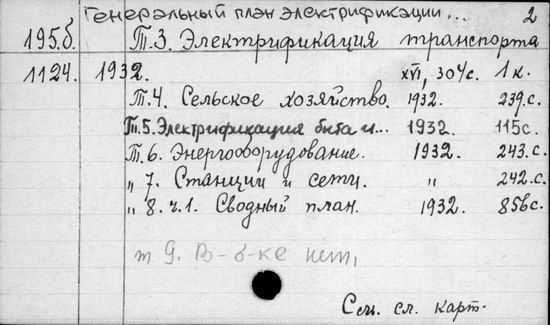 Генеральный план электрификации... 2
195.б. Т.3. Электрификация транспорта
1124. 1932. XVI, 304с. 1к.
Т.4. Сельское хозяйство. 1932. 239.с.
Т.5. Электрификация быта и... 1932. 115с.
Т.6. Энергооборудование. 1932. 243.с.
„ 7. Станции и сети. „ 242.с.
„ 8.ч.1. Сводный план. 1932. 856с.
т 9. В-б-ке нет,
См. сл. карт.